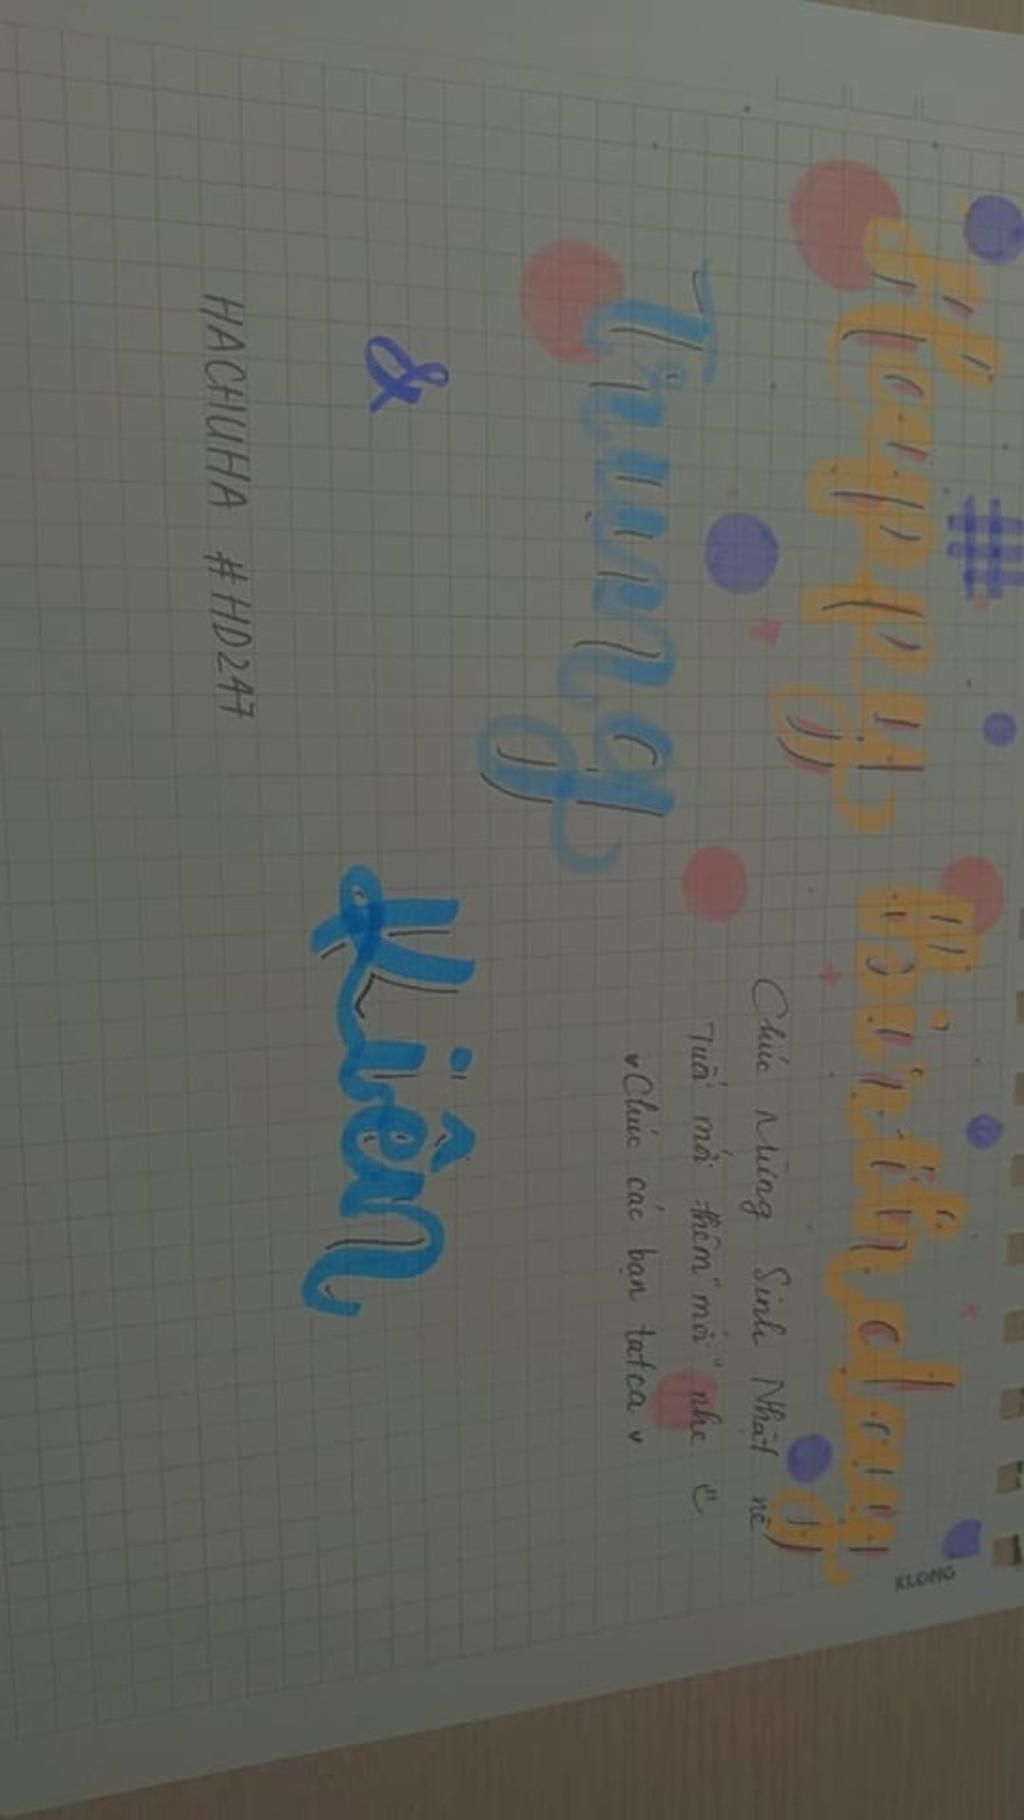 #
Happy Birthday
Trung
Chúc Mừng Sinh Nhật nè
Tuổi mới thêm "mới" nhe
Chúc các bạn tatca
& Kiên
HACHUHA #HD247
KLONG